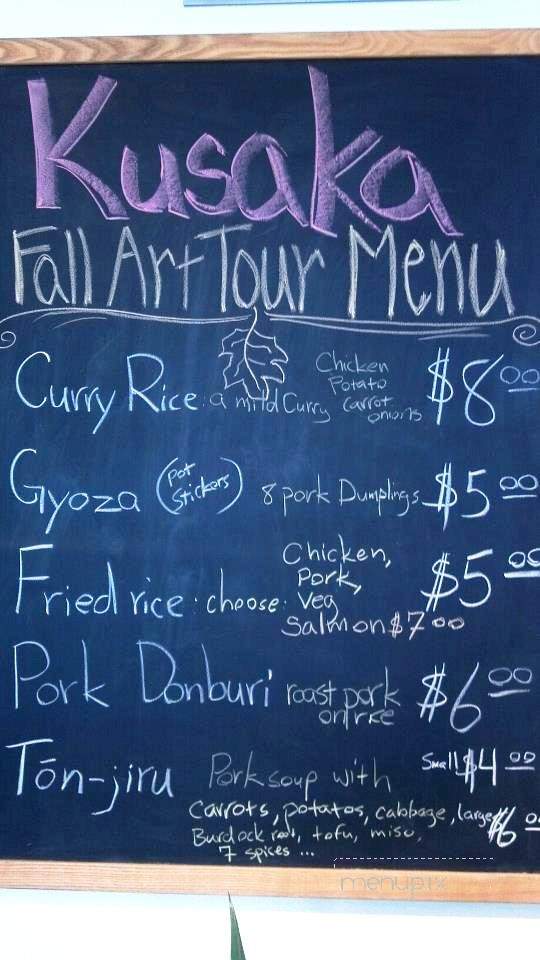 Kusaka
Fall Art Tour Menu
Curry Rice: a mild Curry Chicken Potato carrot onions $8 00
Gyoza (Pot Stickers) 8 pork Dumplings $5 00
Fried rice: choose: Chicken, Pork, Veg $5 00
Salmon $7 00
Pork Donburi roast pork on rice $6 00
Tōn-jiru Pork soup with Small $4 00
carrots, potatos, cabbage, large $6 00
Burdock root, tofu, miso,
7 spices ...
menupix